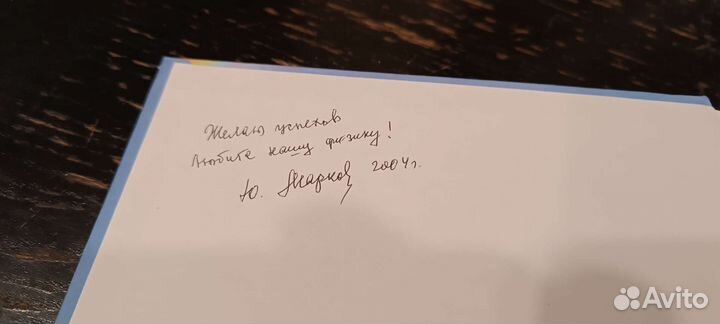 Желаю успехов
Любите нашу физику!
Ю. Марков 2004г.
Avito